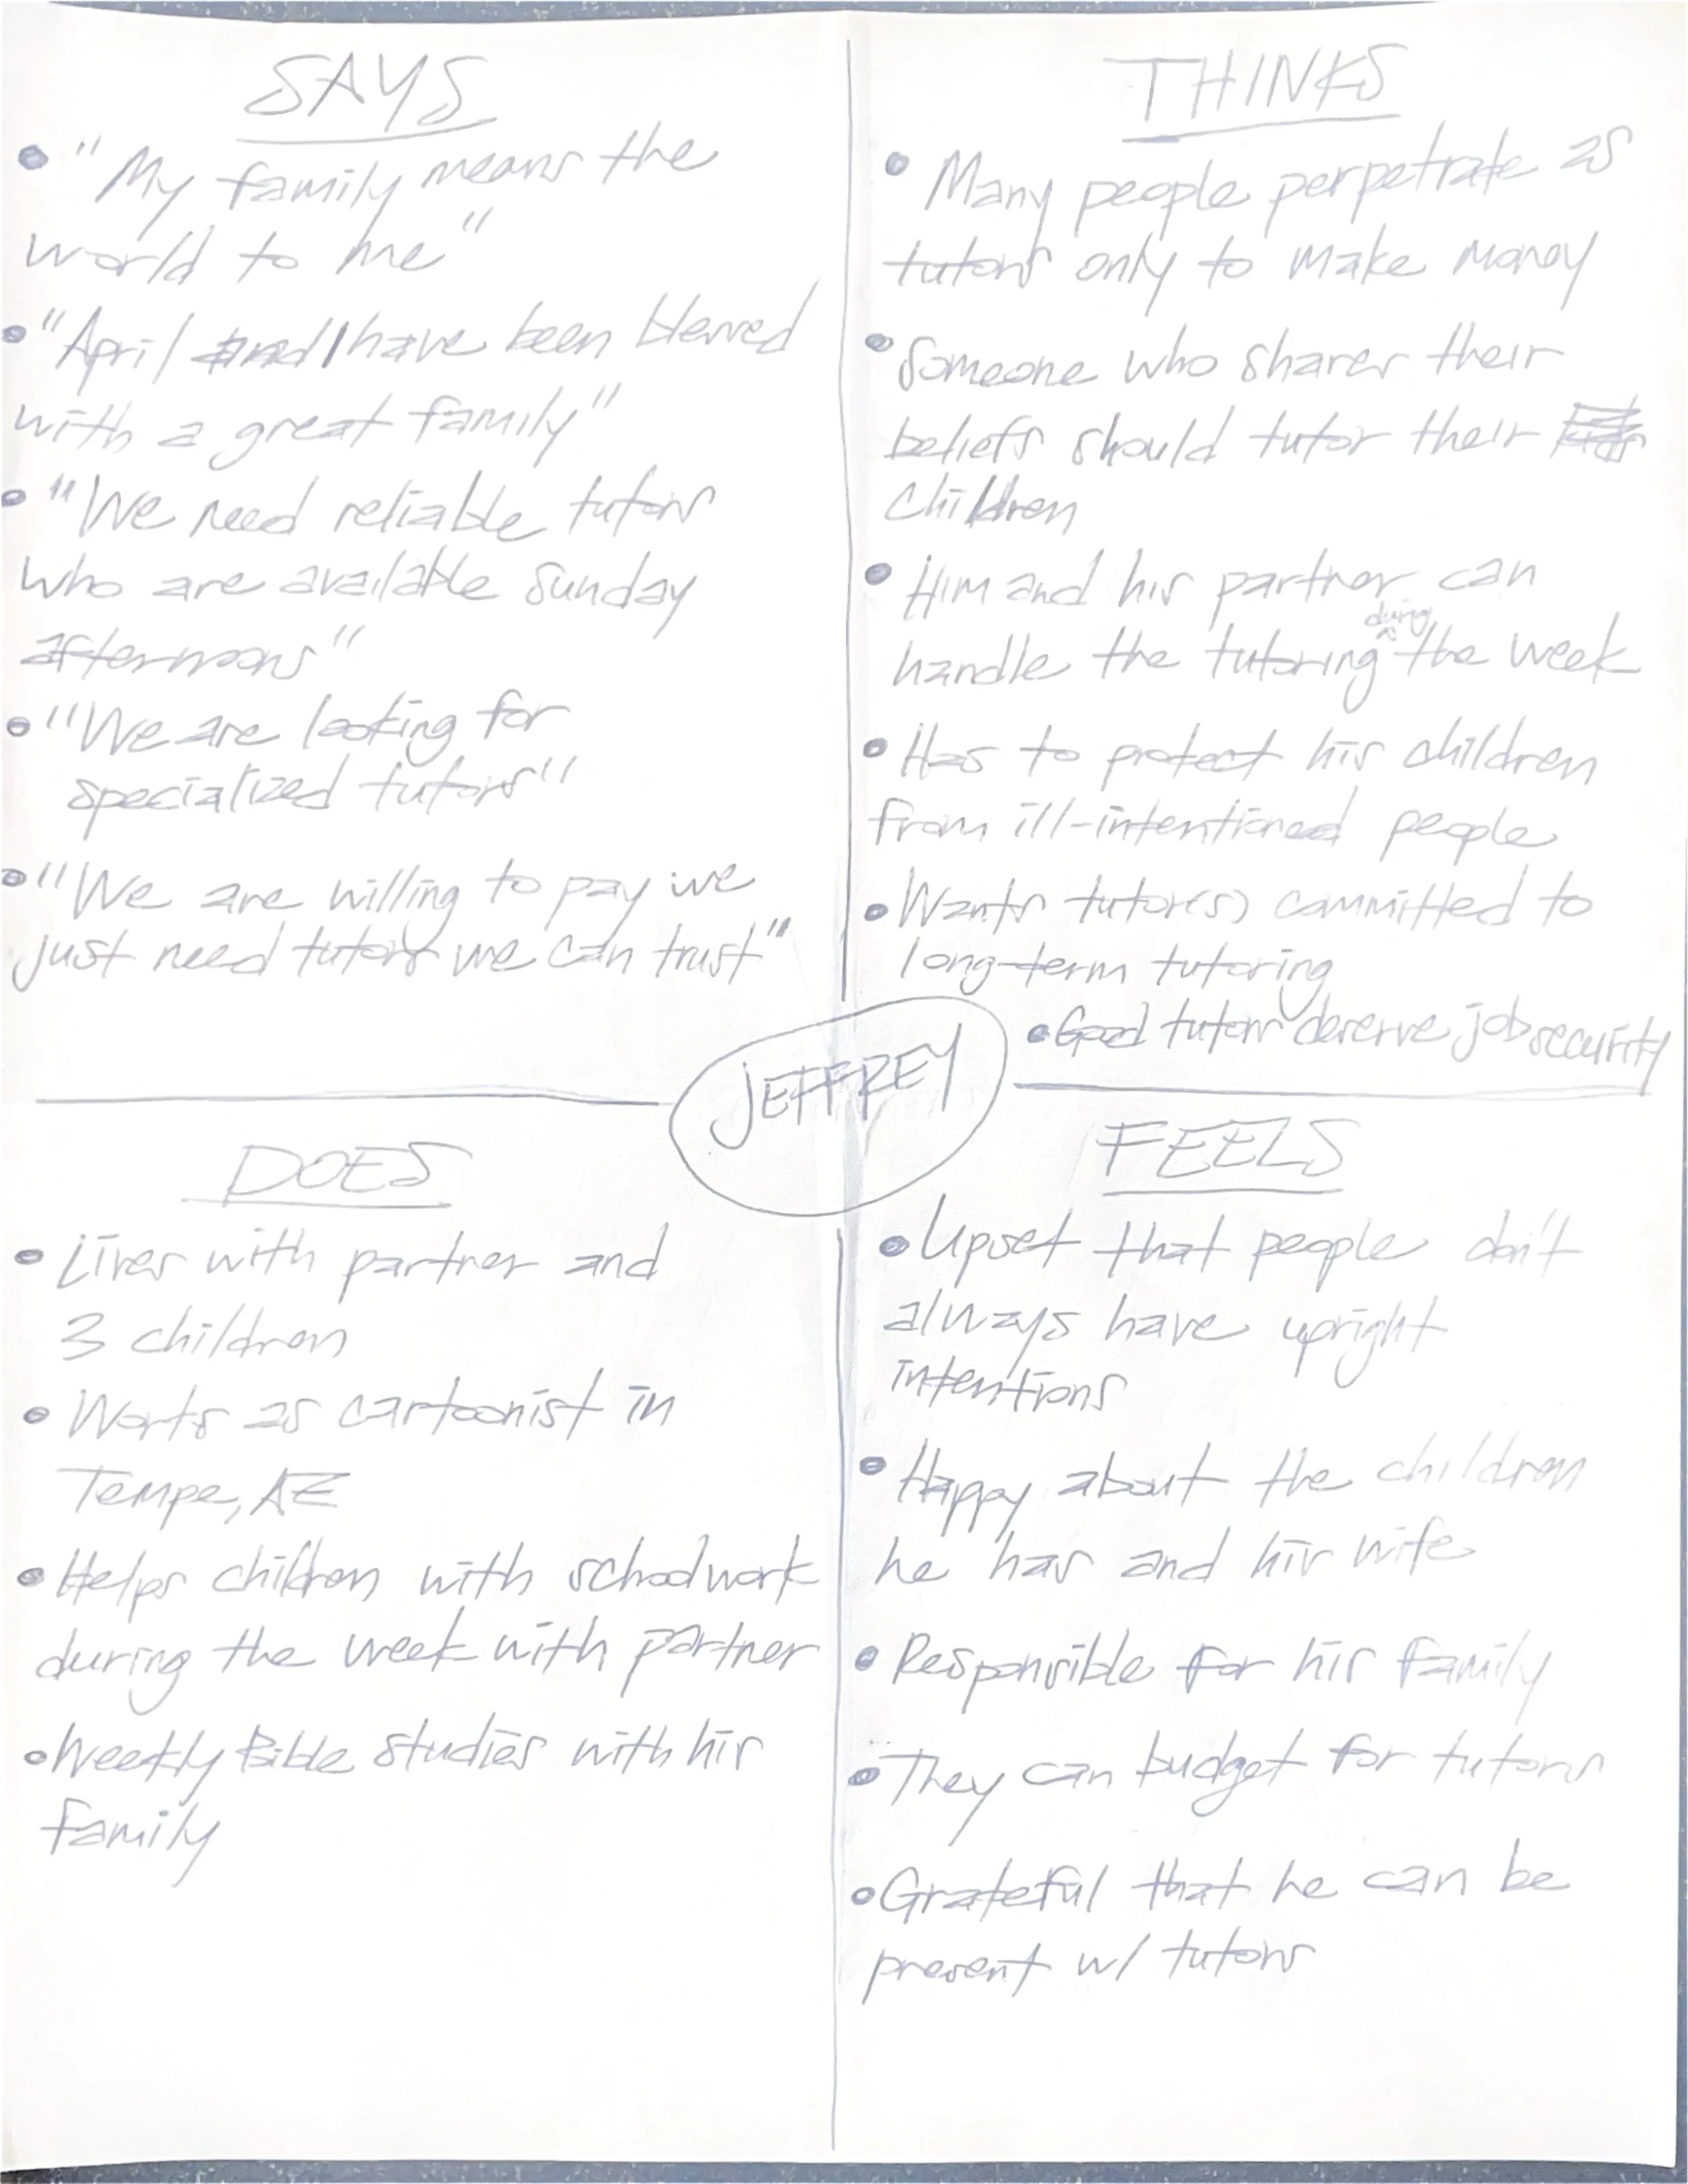 SAYS
• "My family means the
world to me"
• "April and I have been blessed
with a great family"
• "We need reliable tutors
who are available Sunday
afternoons"
• "We are looking for
specialized tutors"
• "We are willing to pay we
just need tutors we can trust"
THINKS
• Many people perpetrate as
tutors only to make money
• Someone who shares their
beliefs should tutor their
children
• Him and his partner can
during
handle the tutoring ^ the week
• Has to protect his children
from ill-intentioned people
• Wants tutor(s) committed to
long-term tutoring
• Good tutors deserve job security
JEFFREY
DOES
• Lives with partner and
3 children
• Works as cartoonist in
Tempe, AZ
• Helps children with schoolwork
during the week with partner
• Weekly Bible studies with his
family
FEELS
• Upset that people don't
always have upright
intentions
• Happy about the children
he has and his wife
• Responsible for his family
• They can budget for tutors
• Grateful that he can be
present w/ tutors